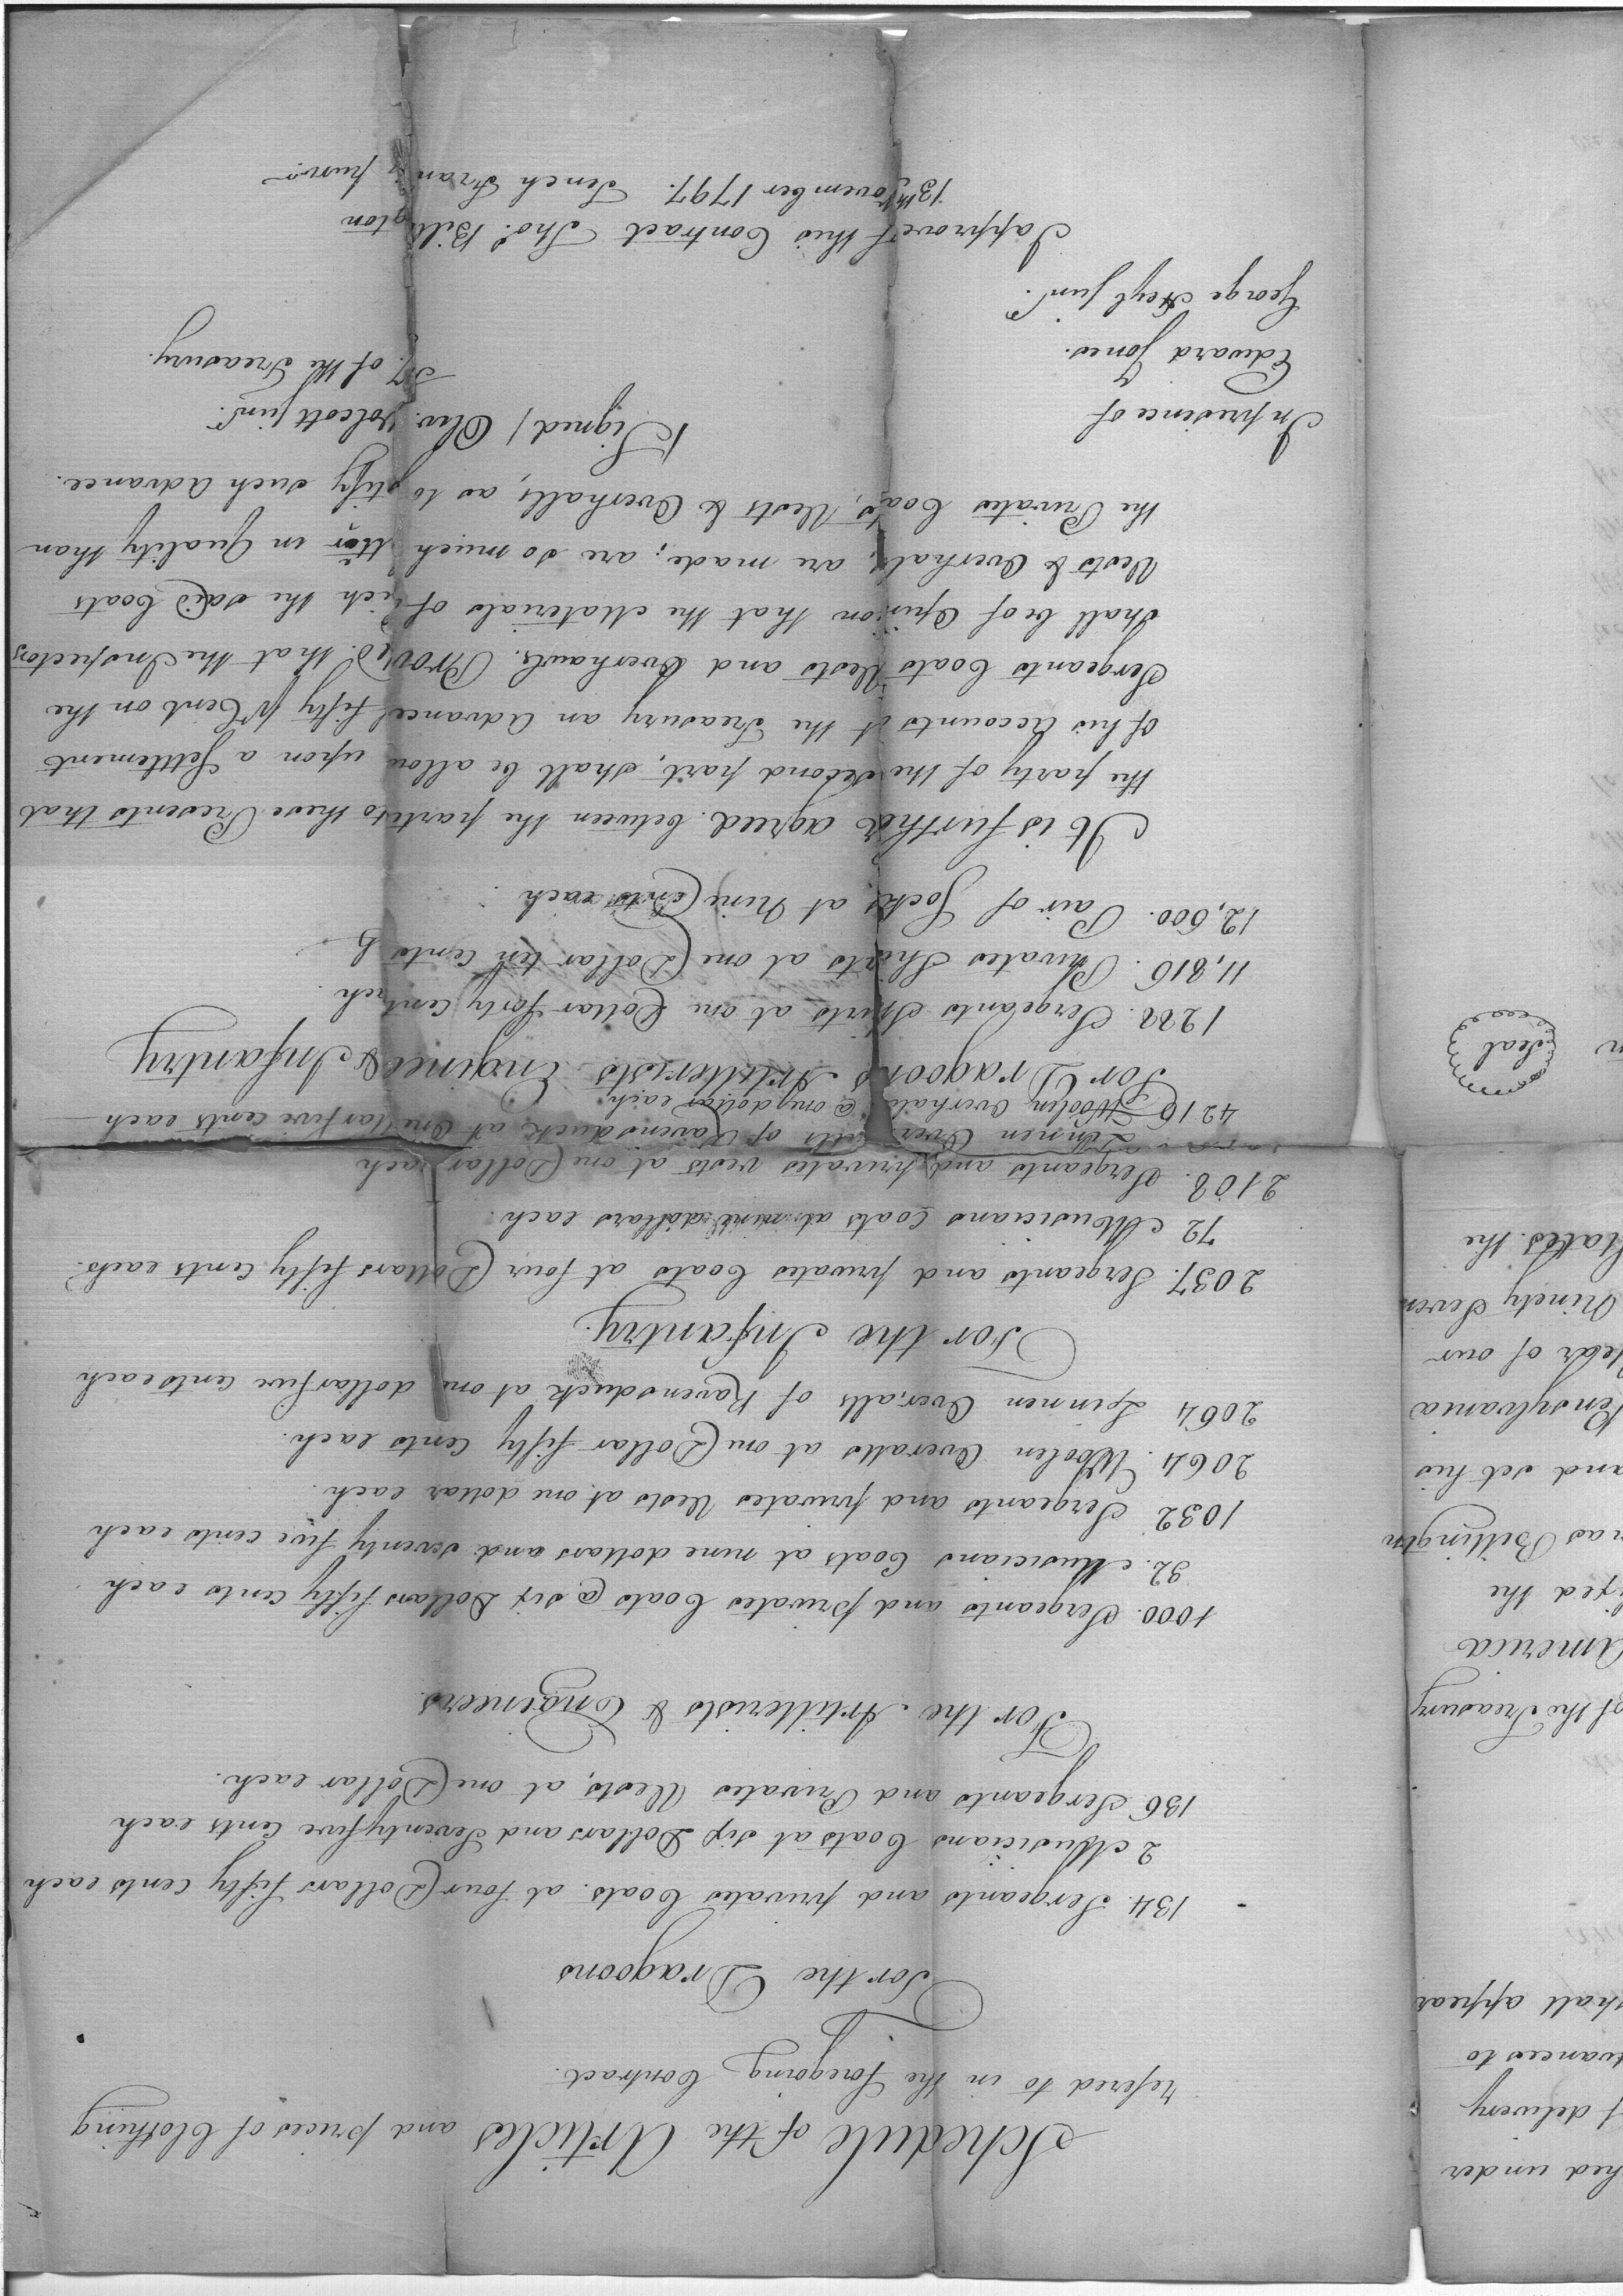 Schedule of the Articles and prices of Clothing
refered to in the foregoing Contract.
For the Dragoons
134. Sergeants and privates Coats. at four Dollars fifty Cents each
2 Musicians Coats at six Dollars and Seventy five Cents each
136 Sergeants and Privates Vests, at one Dollar each.
For the Artillerists & Engineers.
1000. Sergeants and privates Coats @ six Dollars fifty Cents each
32. Musicians Coats at nine dollars and seventy five cents each
1032 Sergeants and privates Vests at one dollar each.
2064. Woolen Overalls at one Dollar fifty Cents each.
2064 Linnen Overalls of Ravensduck at one dollar five Cents each
For the Infantry.
2037. Sergeants and privates Coats at four Dollars fifty Cents each.
72 Musicians Coats at nine dollars each.
2108. Sergeants and privates vests at one Dollar each
Linnen Overalls of Ravensduck at One Dollar five cents each
4216 Woolen Overhals @ one dollar each
For Dragoons Artillerists Engineers & Infantry
1288. Sergeants Shirts at one Dollar forty Cents each.
11,816. Privates Shirts at one Dollar ten Cents
12,600. Pair of Socks, at Nine Cents each
It is further agreed between the parties to these Presents that
the party of the second part, shall be allowed upon a Settlement
of his Accounts at the Treasury an Advance of fifty pr Cent on the
Sergeants Coats Vests and Overhauls. Provided that the Inspectors
shall be of Opinion that the Materials of which the said Coats
Vests & Overhalls, are made; are so much better in Quality than
the Privates Coats, Vests & Overhalls, as to justify such Advance.
In presence of
Edward Jones.
George Heyl junr.
Signed / Oliv. Wolcott junr.
Sy. of the Treasury.
I approve of this Contract Thos. Billington
13th November 1797. Tench Francis junr.
shed under
of delivery
vances to
shall appear
of the Treasury
America
fixed the
mas Billington
and set his
Pensylvania
Year of our
Ninety Seven
States. the
Seal